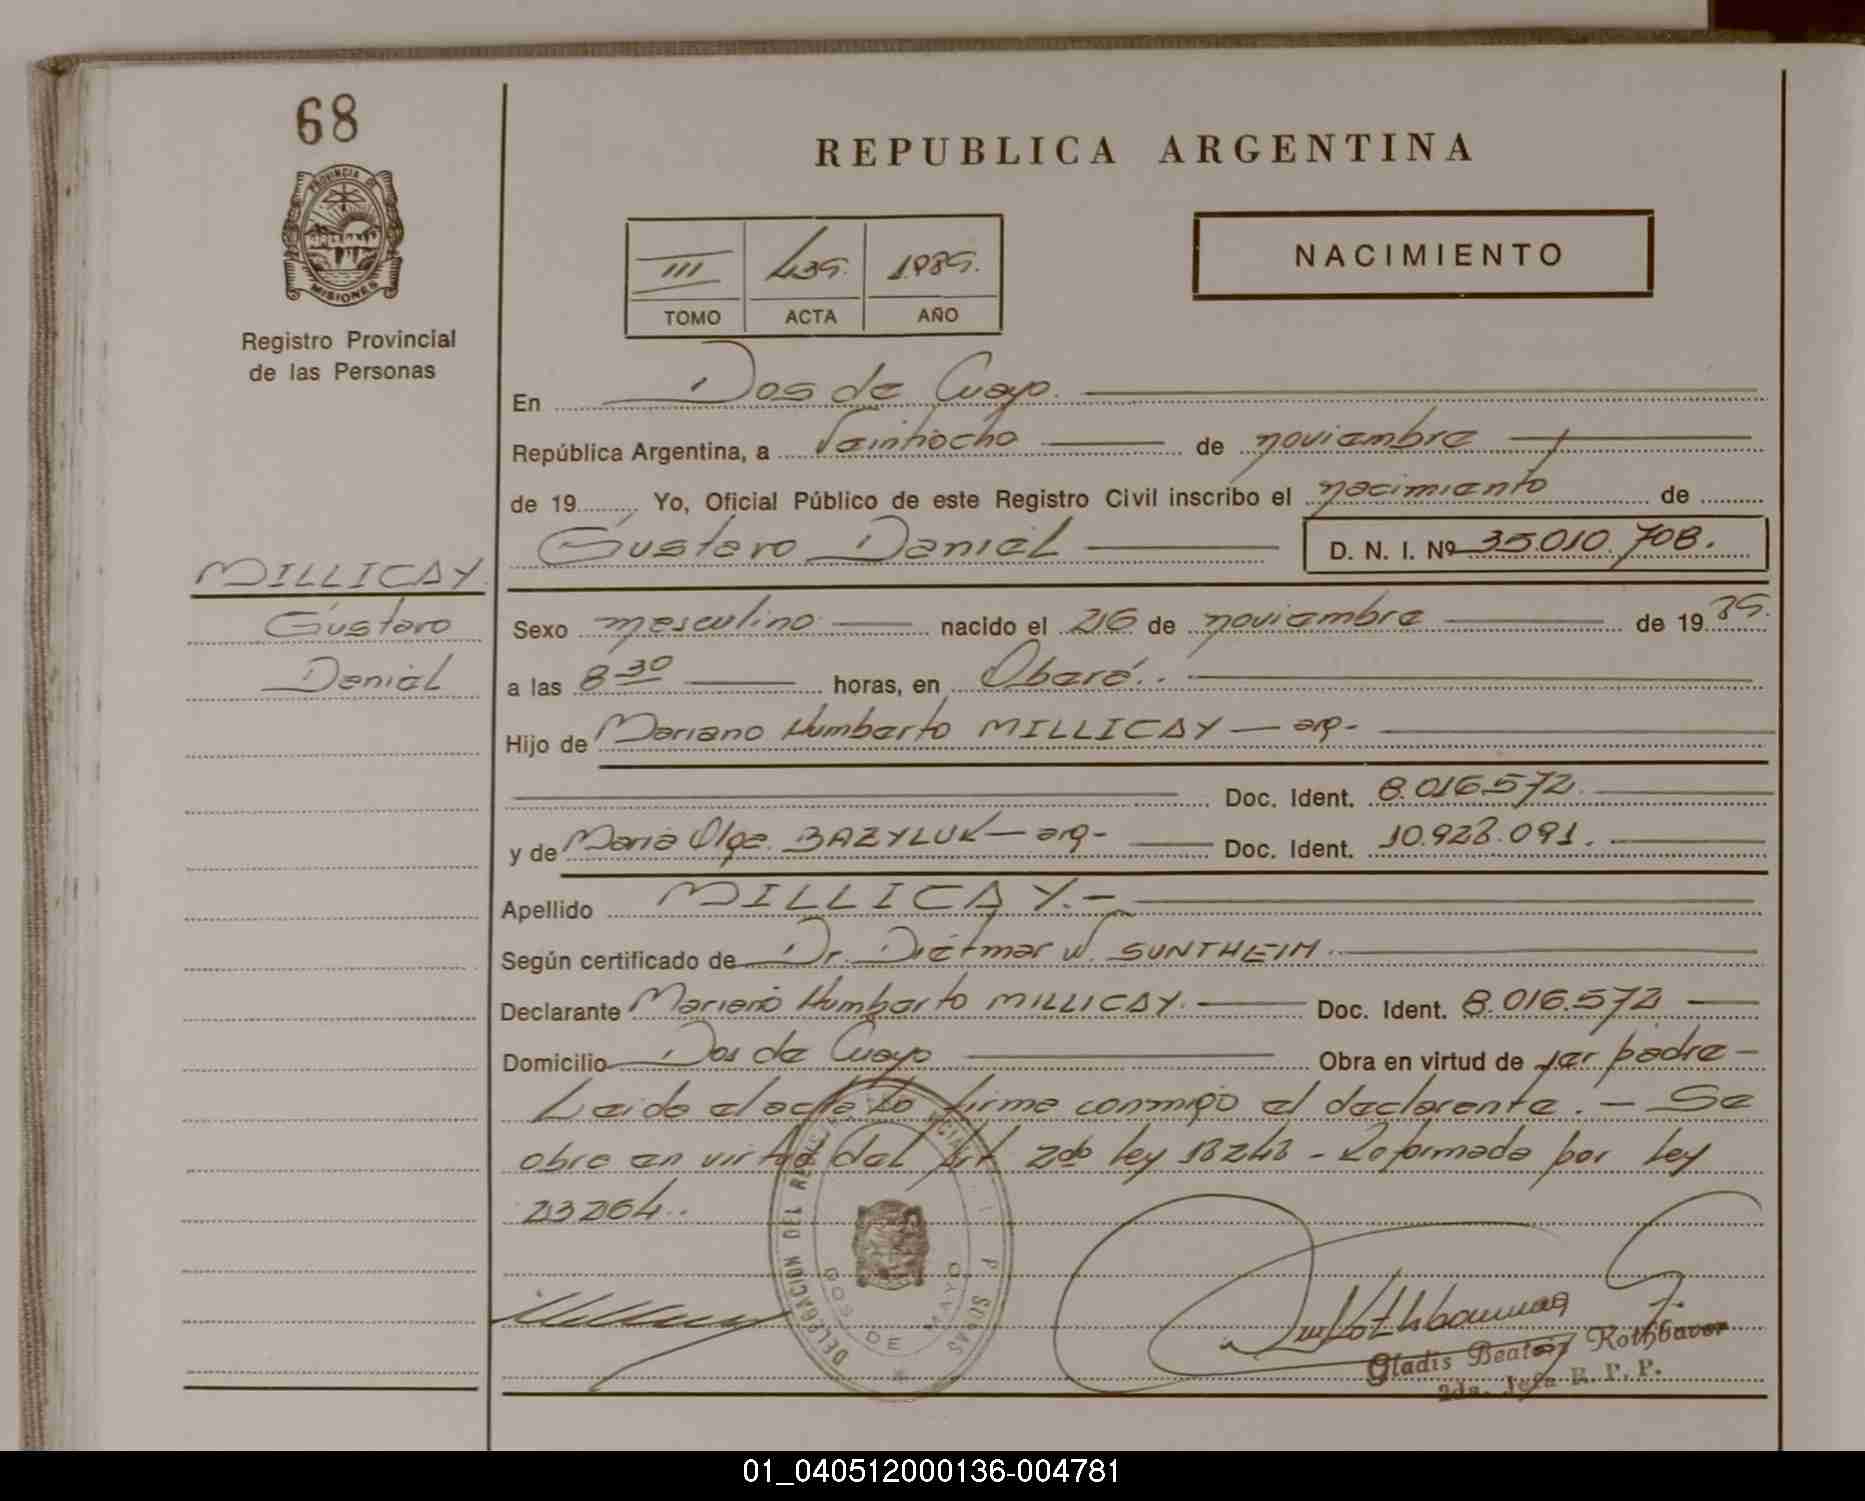 68
REPUBLICA ARGENTINA
PROVINCIA DE
MISIONES
NACIMIENTO
III 439. 1989.
TOMO ACTA AÑO
Registro Provincial
de las Personas
En Dos de Mayo.
República Argentina, a Veintiocho de noviembre
de 19 Yo, Oficial Público de este Registro Civil inscribo el nacimiento de
Gustavo Daniel D. N. I. Nº 35.010.708.
MILLICAY
Gustavo
Daniel
Sexo masculino nacido el 26 de noviembre de 19 89.
a las 8 30 horas, en Oberá.
Hijo de Mariano Humberto MILLICAY — arg-
Doc. Ident. 8.016.572.
y de Maria Olga BAZYLUK — arg- Doc. Ident. 10.928.091.
Apellido MILLICAY.-
Según certificado de Dr. Dietmar W. SUNTHEIM
Declarante Mariano Humberto MILLICAY. Doc. Ident. 8.016.572
Domicilio Dos de Mayo Obra en virtud de ser padre -
Leida el acta la firma conmigo el declarante. - Se
obra en virtud del Art 2do ley 18248 - Reformada por ley
23264.
DELEGACION DEL
DOS DE MAYO
Gladis Beatriz Rothbaver
2da. Jefa R. P. P.
01_040512000136-004781